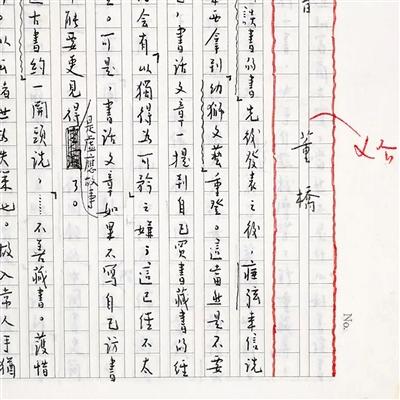 董橋
書的書先後發表之後,瘂弦來信說
要拿到幼獅文藝重登。這當然是不要
,書話文章一提到自己買書藏書的經
會有以獨得為可矜之嫌;這已經不太
。可是,書話文章如果不寫自己訪書
是虛應故事
能要更見得了。
古書約一開頭說,……不善藏書。護惜
也。故入常人手猶
No.